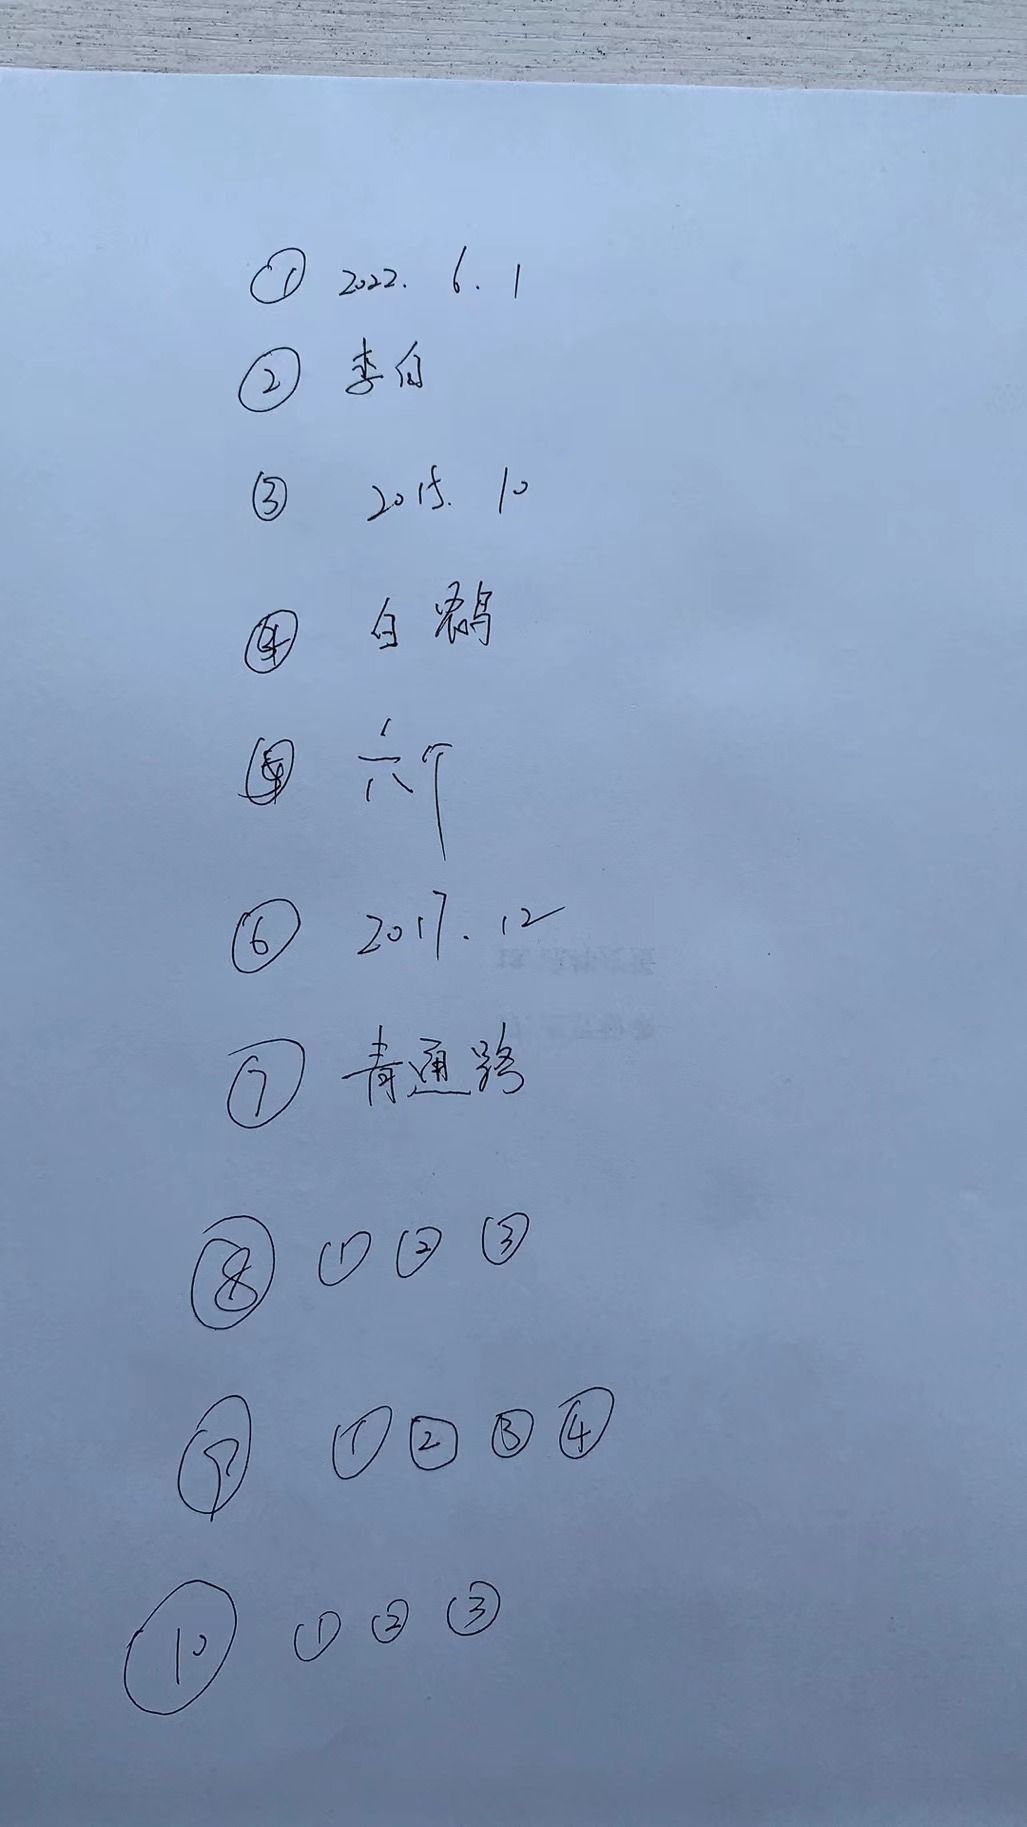 ① 2022. 6. 1
② 李白
③ 2015. 10
④ 白鹭鸟
⑤ 六个
⑥ 2017. 12
⑦ 青通路
⑧ ① ② ③
⑨ ① ② ③ ④
⑩ ① ② ③